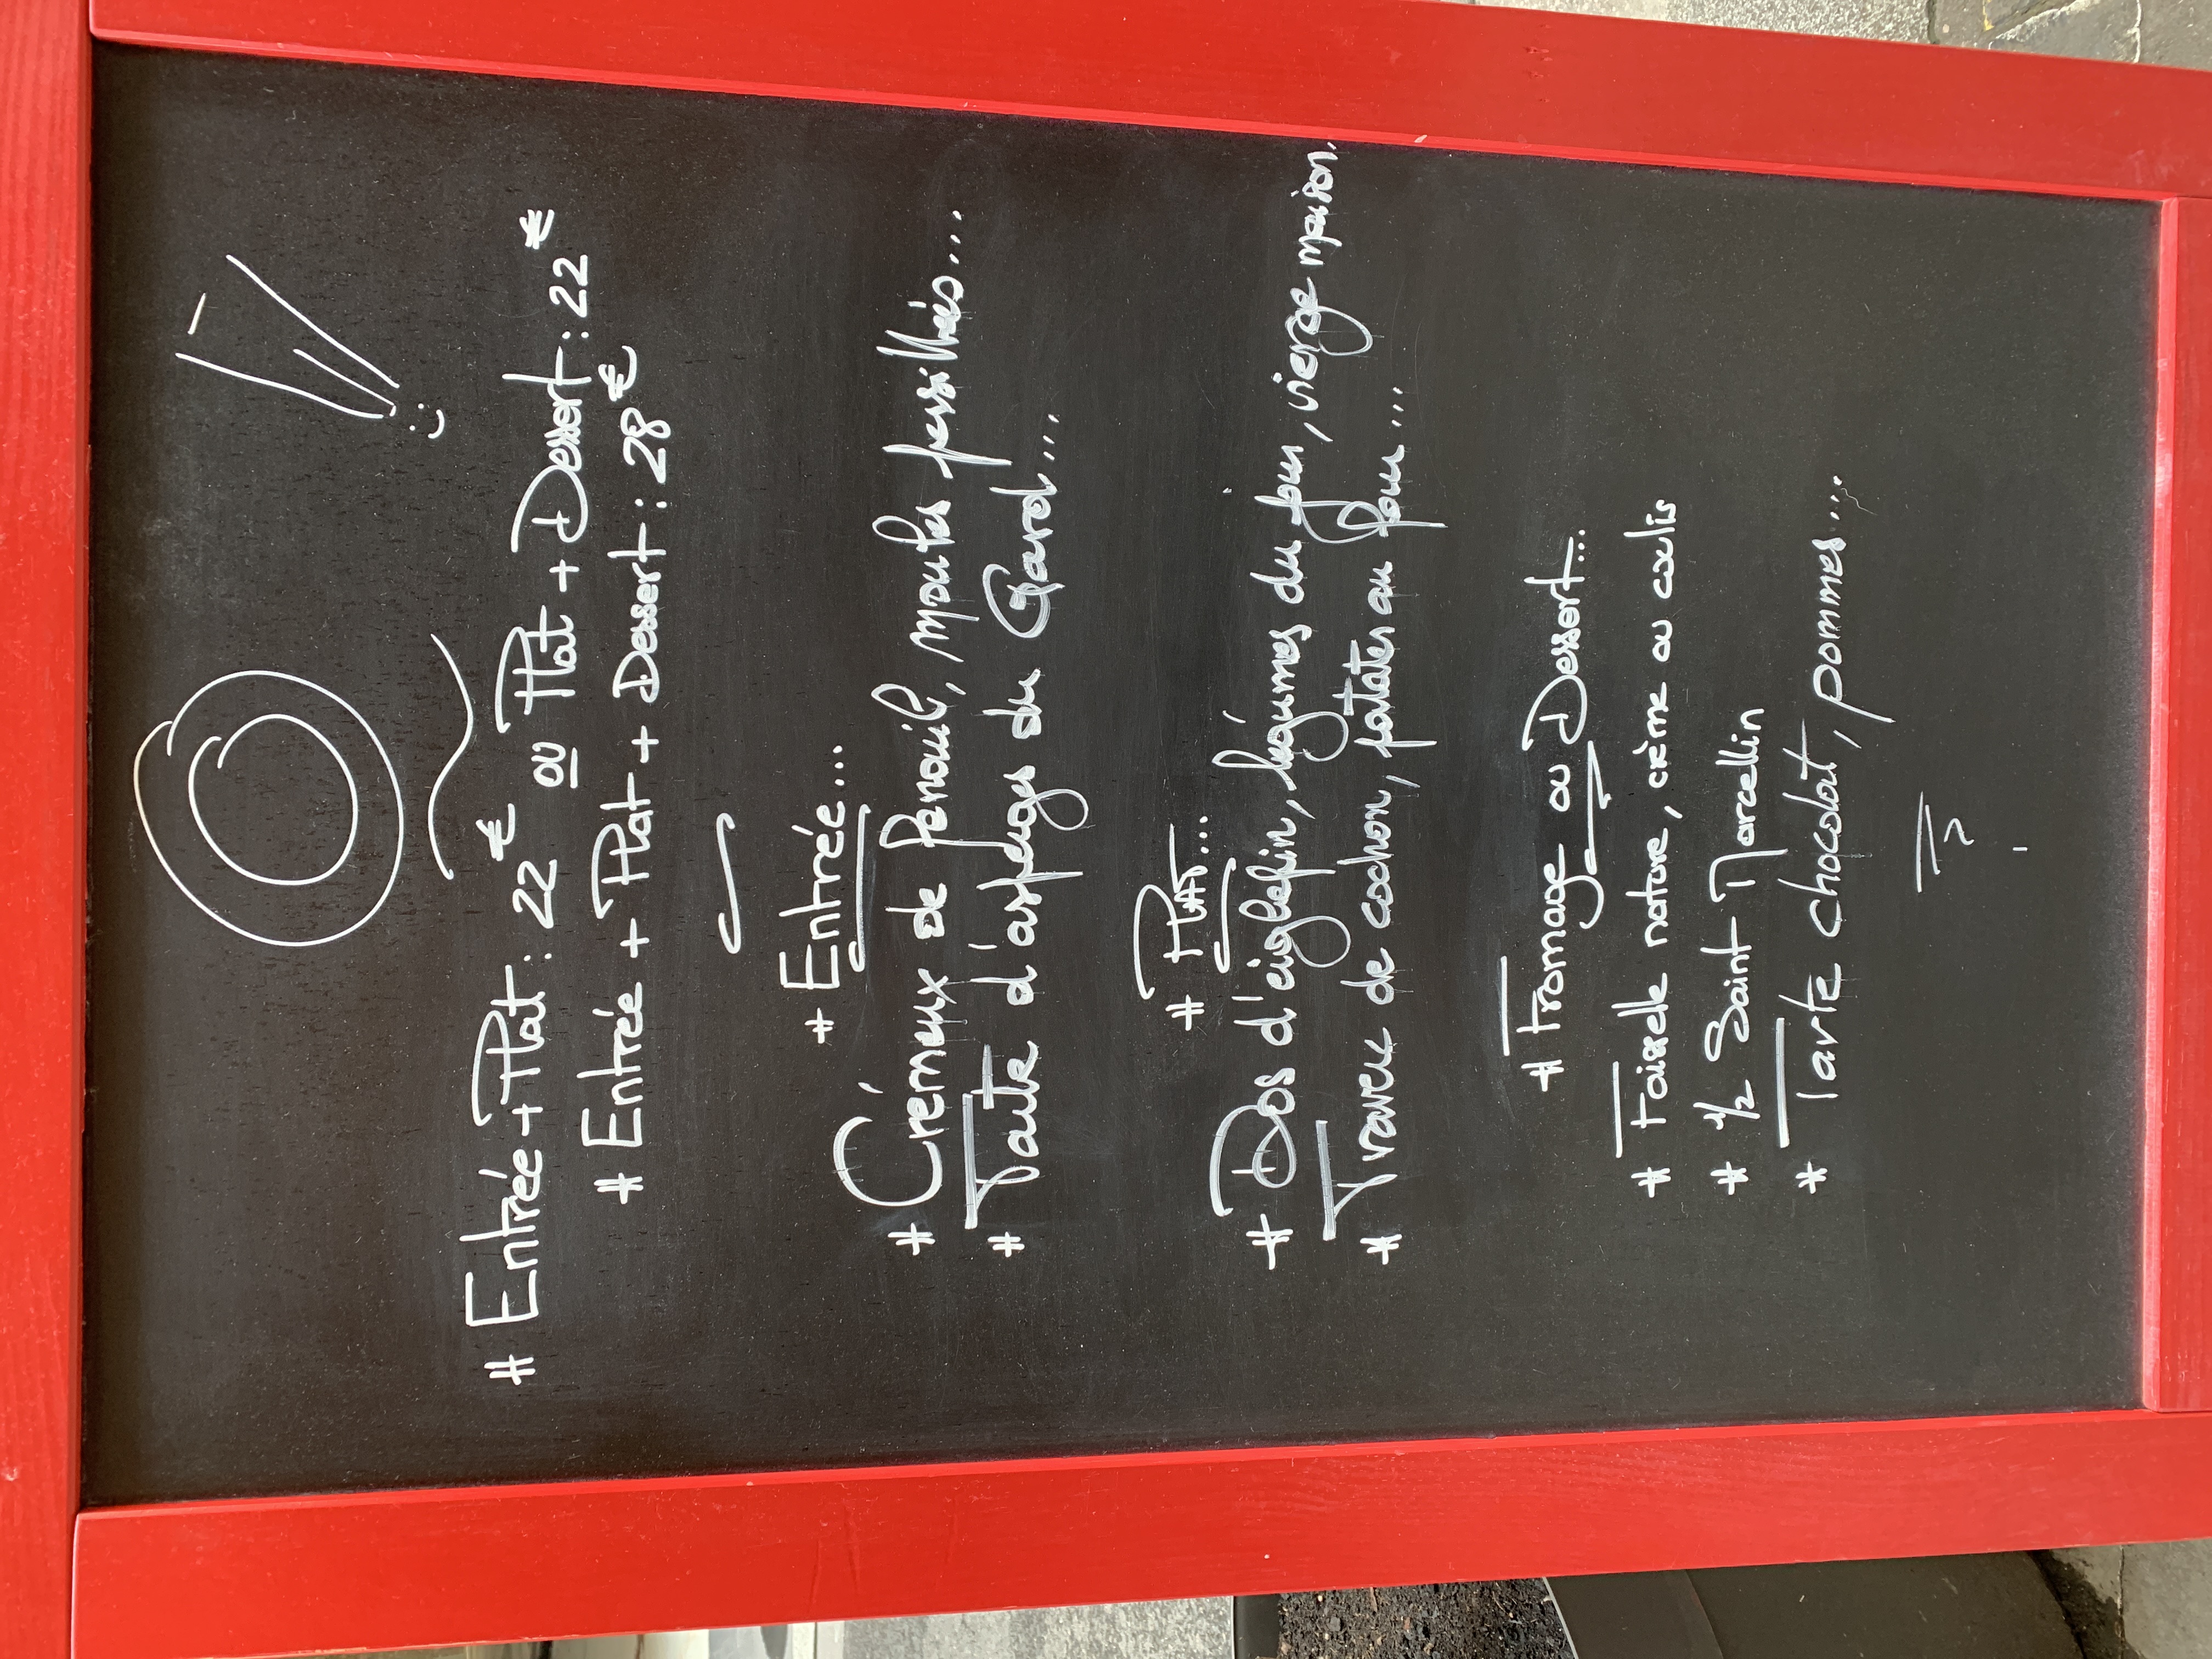 # Entrée + Plat : 22€ ou Plat + Dessert : 22€
# Entrée + Plat + Dessert : 28€
# Entrée...
# Crémeux de fenouil, moules persillées...
# Tarte d'asperges du Gard...
# Plat...
# Dos d'églefin, légumes du jour, vierge maison.
# Travers de cochon, patates au four...
# Fromage ou Dessert...
# Faisselle nature, crème ou coulis
# 1/2 Saint Marcellin
# Tarte chocolat, pommes...